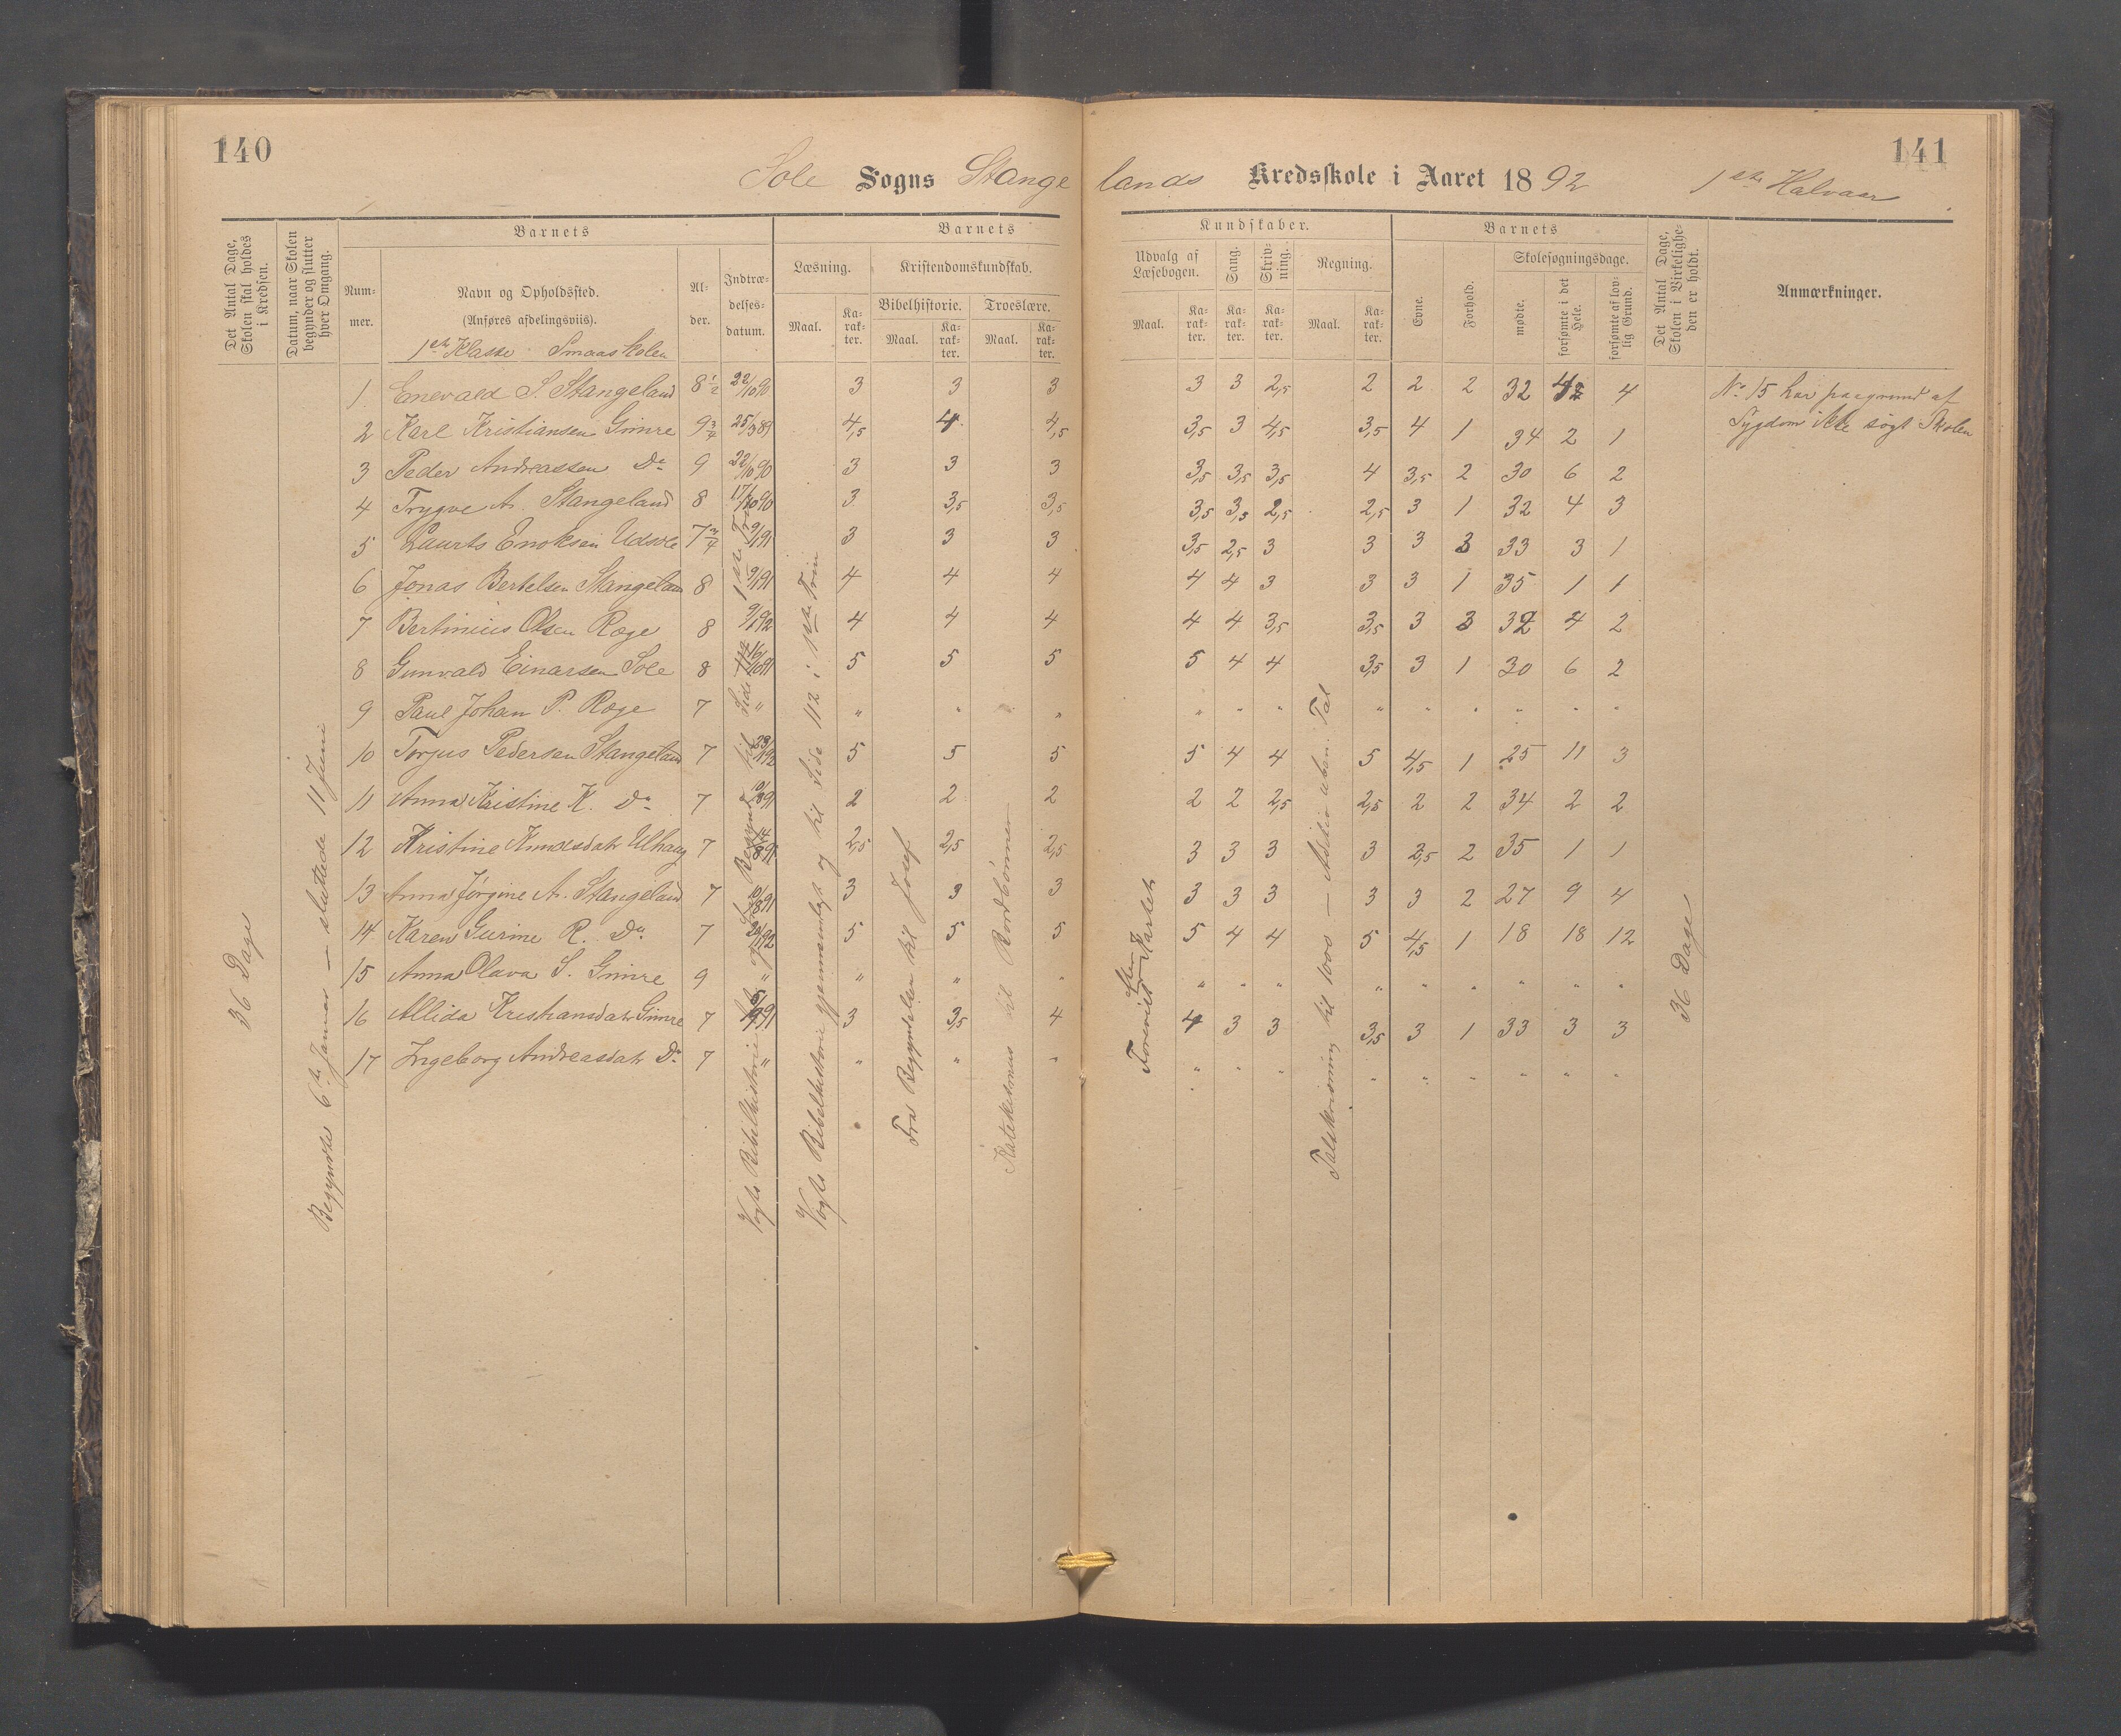 140
141
Sole Sogns Stange lands Kredsskole i Aaret 1892 1ste Halvaar
Det Antal Dage, Skolen skal holdes i Kredsen.
Datum, naar Skolen begynder og slutter hver Omgang.
Barnets
Nummer.
Navn og Opholdssted.
(Anføres afdelingsviis).
1ste Klasse Smaaskolen
Alder.
Indtrædelses-datum.
Barnets
Læsning.
Maal.
Karakter.
Kristendomskundskab.
Bibelhistorie.
Maal.
Karakter.
Troeslære.
Maal.
Karakter.
Kundskaber.
Udvalg af Læsebogen.
Maal.
Karakter.
Sang.
Karakter.
Skrivning.
Karakter.
Regning.
Maal.
Karakter.
Barnets
Evne.
Forhold.
Skolesøgningsdage.
mødte.
forsømte i det Hele.
forsømte af lovlig Grund.
Det Antal Dage, Skolen i Virkeligheden er holdt.
Anmærkninger.
1 Enevald S. Stangeland 8 1/2 22/10 90 3 3 3 3 3 2,5 2 2 2 32 4 4 No 15 har paagrund af
2 Karl Kristiansen Gimre 9 3/4 25/3 89 4,5 4 4,5 3,5 3 4,5 3,5 4 1 34 2 1 Sygdom ikke søgt Skolen
3 Peder Andreassen Do 9 22/10 90 3 3 3 3,5 3,5 3,5 4 3,5 2 30 6 2
4 Trygve A. Stangeland 8 17/10 90 3 3,5 3,5 3,5 3,5 2,5 2,5 3 1 32 4 3
5 Laurts Enoksen Udsole 7 3/4 9/1 91 3 3 3 3,5 2,5 3 3 3 3 33 3 1
6 Jonas Bertelsen Stangeland 8 9/1 91 4 4 4 4 4 3 3 3 1 35 1 1
7 Bertinius Olsen Røge 8 9/1 92 4 4 4 4 4 3,5 3,5 3 3 32 4 2
8 Gunvald Einarsen Sole 8 16/10 91 5 5 5 5 4 4 3,5 3 1 30 6 2
9 Paul Johan P. Røge 7 " " " " " " " " " " " " "
10 Torjus Pedersen Stangeland 7 5 5 5 5 4 4 5 4,5 1 25 11 3
11 Anna Kristine K. Do 7 10/8 91 2 2 2 2 2 2,5 2,5 2 2 34 2 2
12 Kristine Knudsdatr Ulhaug 7 2,5 2,5 2,5 3 3 3 3 2,5 2 35 1 1
13 Anna Jørgine A. Stangeland 7 10/8 91 3 3 3 3 3 3 3 3 2 27 9 4
14 Karen Gurine R. Do 7 5 5 5 5 4 4 5 4,5 1 18 18 12
15 Anna Olava S. Gimre 9 " " " " " " " " " " " " "
16 Allida Kristiansdatr Gimre 7 3 3,5 4 4 3 3 3,5 3 1 33 3 3
17 Ingeborg Andreasdatr Do 7 " " " " " " " " " " " " "
36 Dage
Begyndte 6te Januar — sluttede 11 Juni
Vogts Bibelhistorie
Vogts Bibelhistorie gjennemgaaet og til Side 112 i 1ste Trin
Fra Begyndelsen til Josef
Katekismus til Bordbønnen
Talskrivning til 1000 — Addition ubæn. Tal
36 Dage